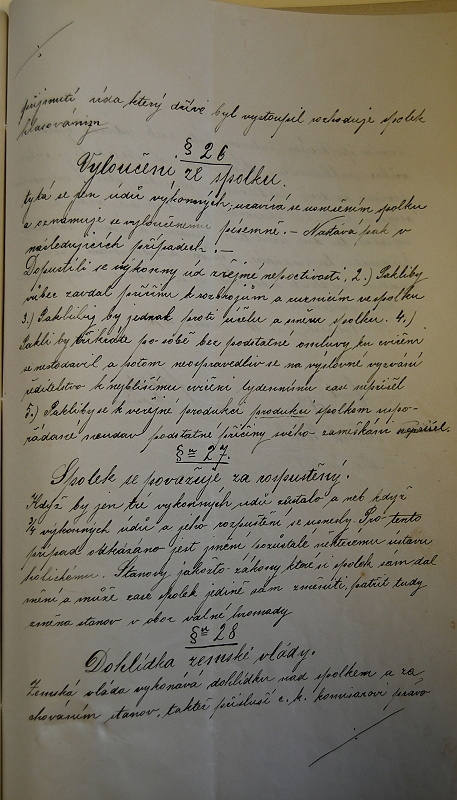 přijmutí úda který dříve byl vystoupil rozhoduje spolek
hlasováním
§ 26
Vyloučení ze spolku.
týká se jen údů výkonných, uzavírá se usnešením spolku
a oznámuje se vyloučenému písemne. – Nastává pak v
následujících případech. –
Dopustili se výkonný úd zřejmé nepoctivosti, 2.) Pakliby
vůbec zavdal příčinu k rozbrojům a ve spolku
3.) Pakliby by jednak proti účelu a směru spolku. 4.)
Pakli by třikráte po sobě bez podstatné omluvy ku cvičení
se nedostavil a potom neospravedliv se na výslovné vyzvání
ředitelstvo k nejbližšímu cvičení týdennímu zase nepřišel
5.) Pakliby se k veřejné produkci produkcí spolkem uspo-
řádané neudav podstatné příčiny svého zameškání nepřišel.
§ 27.
Spolek se považuje za rozpustěný.
Když by jen tré vykonných údů zůstalo a neb když
3/4 výkonných údů a jeho rozpuštění se usnesly Pro tento
případ odkázáno jest jmění pozůstalé některému ústavu
. Stanovy jakožto zákony které si spolek sám dal
mění a může zase spolek jedině sám změniti, patřit tudy
změna stanov v obor valné hromady
§ 28
Dohlídka zemské vlády.
Zemská vláda vykonává dohlídku nad spolkem a za
chováním stanov, taktéž přísluší c. k. komisařovi právo